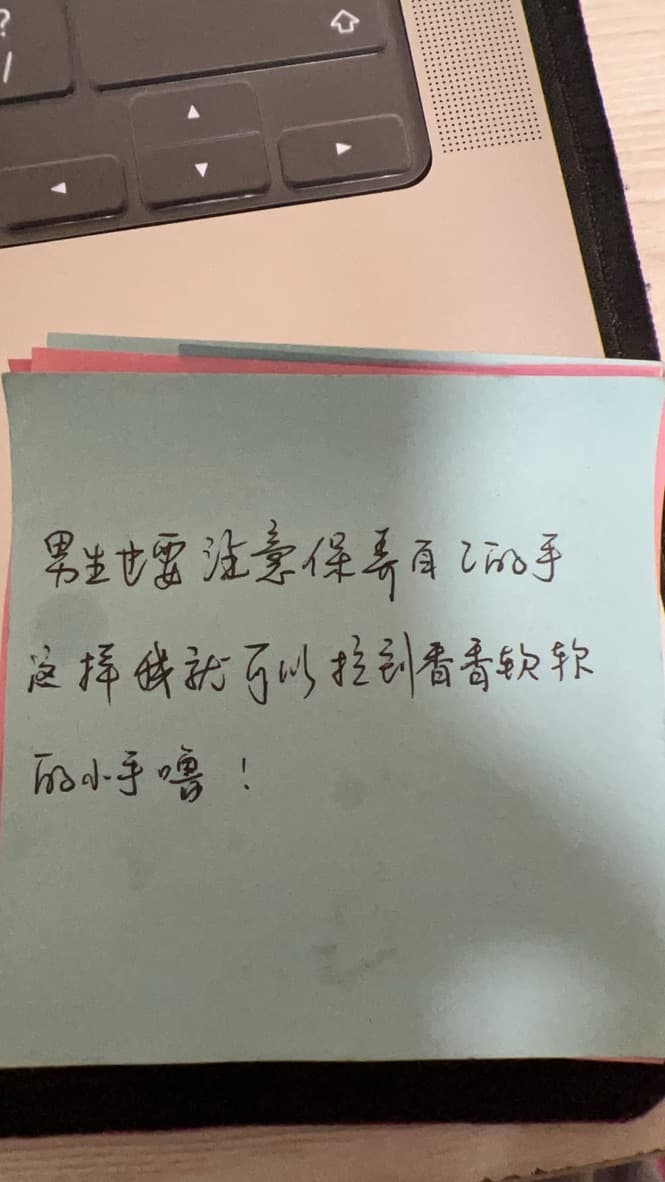 ?
/
男生也要注意保养自己的手
这样我就可以拉到香香软软
的小手噜！